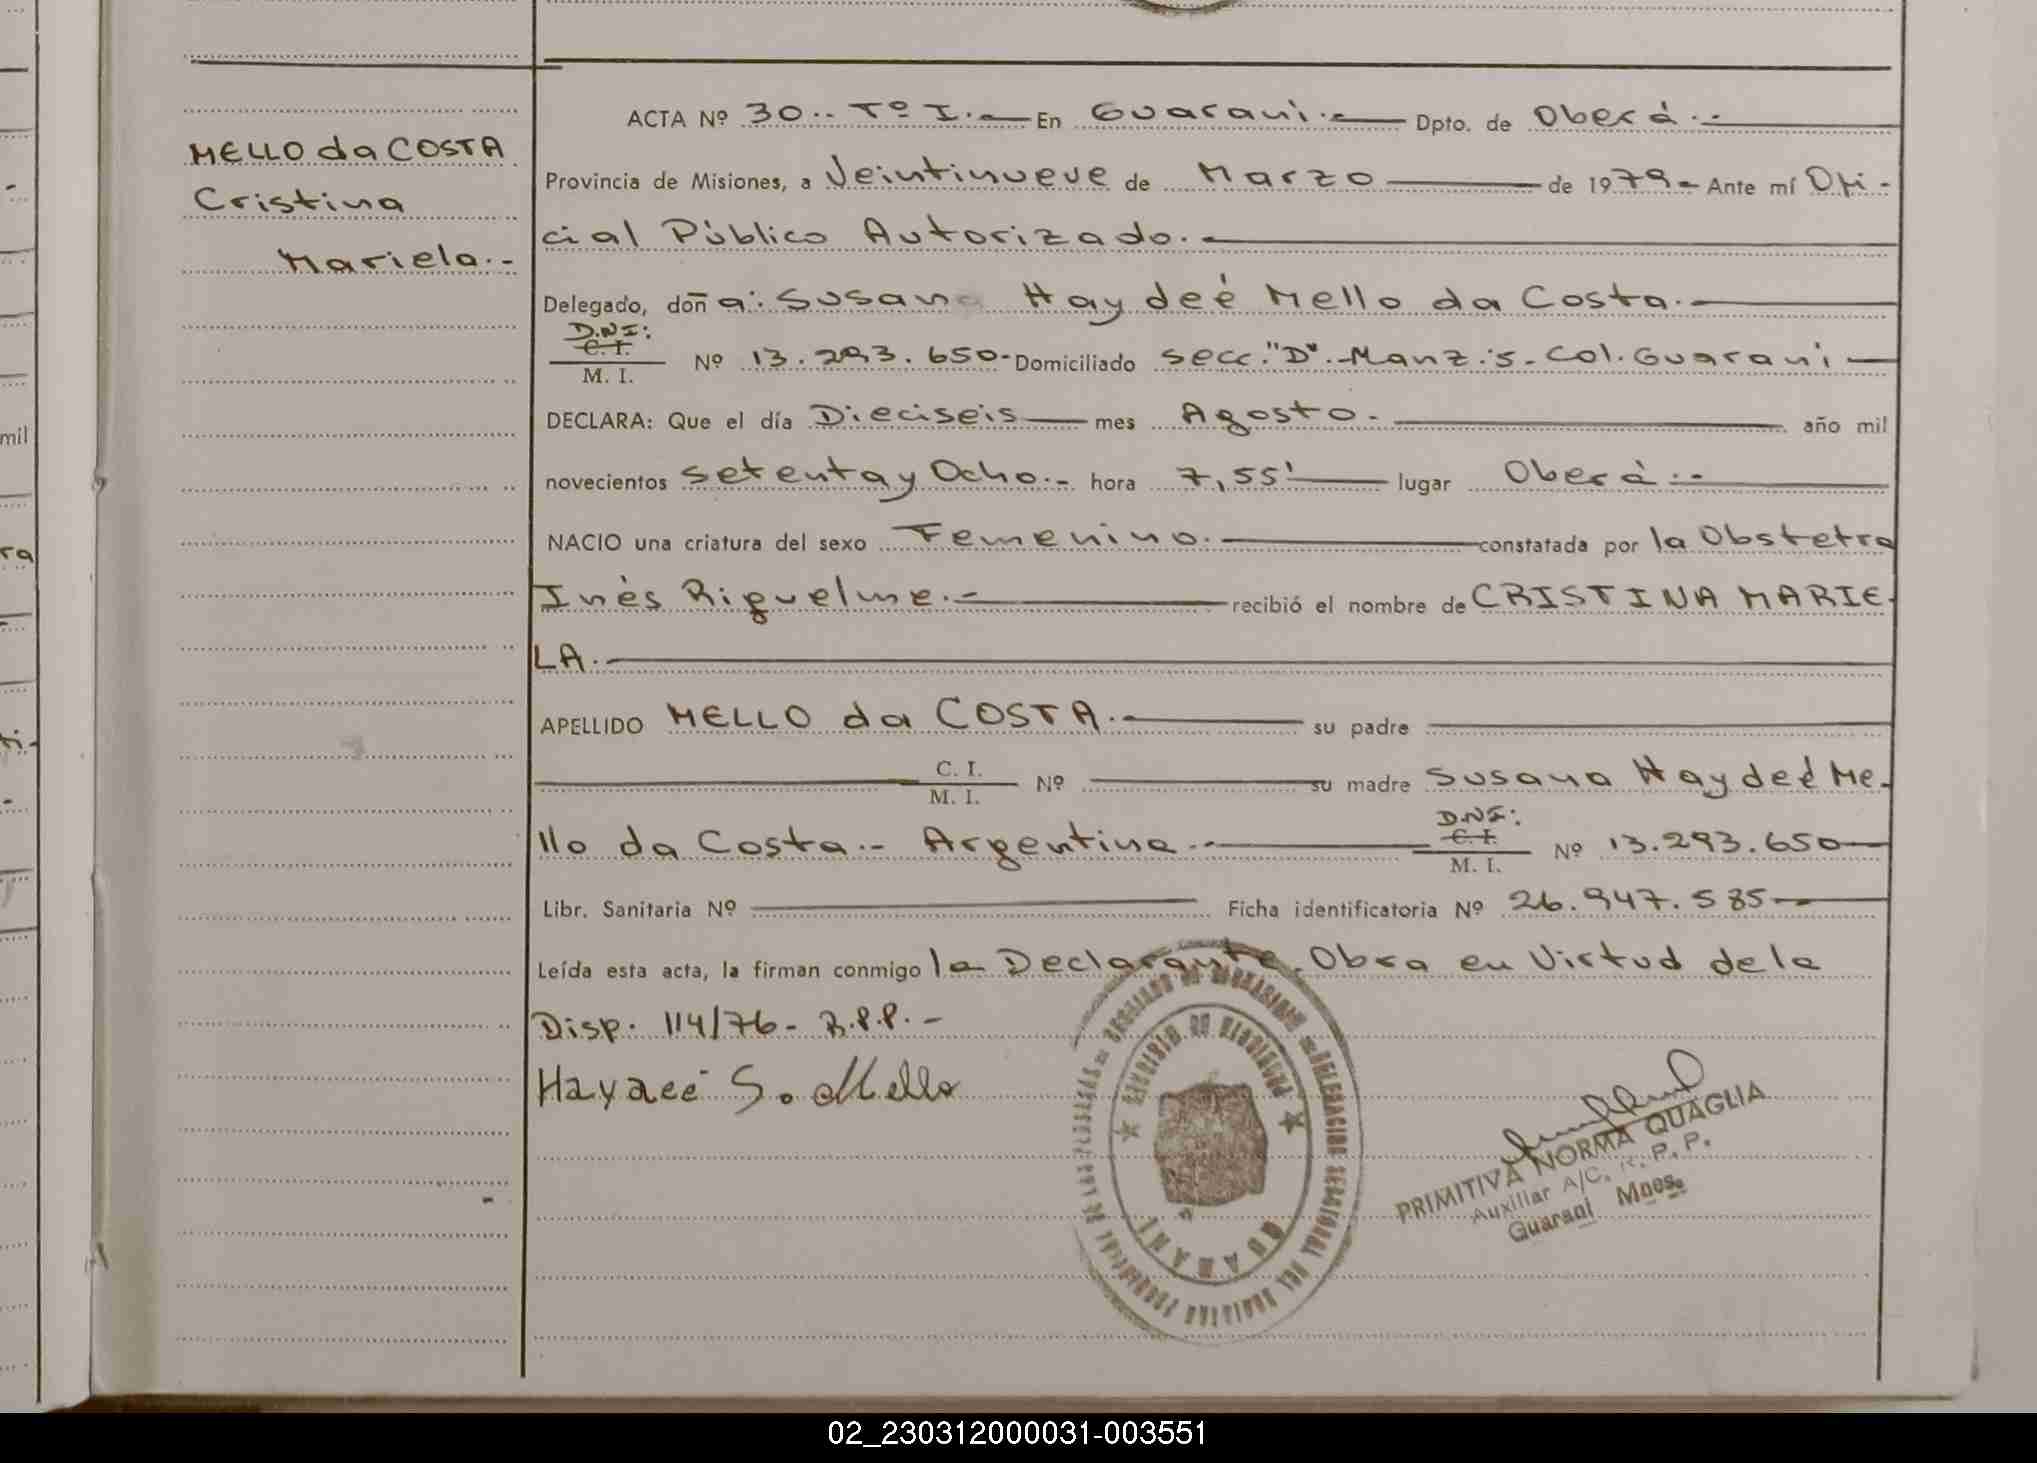 MELLO da COSTA
Cristina
Mariela.-
ACTA Nº 30.. Tº I.- En Guaraní.- Dpto. de Oberá.-
Provincia de Misiones, a Veintinueve de Marzo de 1979.- Ante mí Ofi-
cial Público Autorizado.-
Delegado, doña: Susana Haydeé Mello da Costa.-
D.N.I:
C. I.
M. I.
Nº 13.293.650.- Domiciliado secc."D".-Manz.5.-Col.Guaraní
DECLARA: Que el día Dieciseis mes Agosto.- año mil
novecientos setenta y Ocho.- hora 7,55' lugar Oberá.-
NACIO una criatura del sexo Femenino.- constatada por la Obstetra
Inés Riquelme.- recibió el nombre de CRISTINA MARIE-
LA.-
APELLIDO MELLO da COSTA.- su padre
C. I.
M. I.
Nº su madre Susana Haydeé Me-
llo da Costa.- Argentina.-
D.N.I:
C. I.
M. I.
Nº 13.293.650
Libr. Sanitaria Nº Ficha identificatoria Nº 26.947.585
Leída esta acta, la firman conmigo la Declarante. Obra en Virtud de la
Disp. 114/76- R.P.P.-
Haydeé S. Mello
GUARANI
PRIMITIVA NORMA QUAGLIA
Auxiliar A/C. R. P. P.
Guaraní Mnes.
mil
ra
02_230312000031-003551